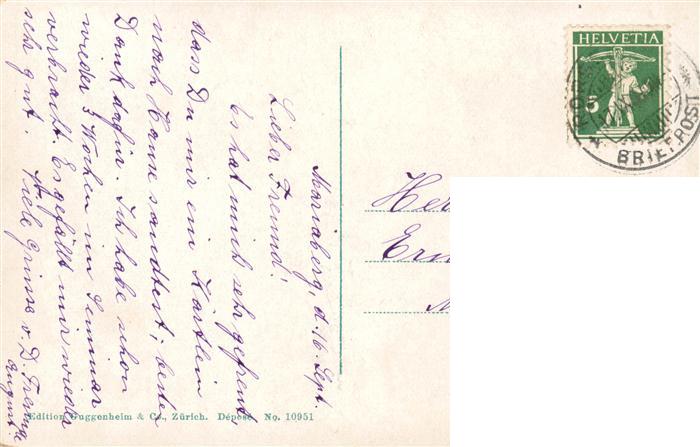 Mariaberg, d. 16. Sept.
Lieber Freund!
Es hat mich sehr gefreut,
dass Du mir ein Kärtlein
nach Hause sandtest; besten
Dank dafür. Ich habe schon
wieder 3 Wochen im Seminar
verbracht. Es gefällt mir wieder
sehr gut. Viele Grüsse v. D. Freunde
August.
HELVETIA
5
BRIEFPOST
Edition Guggenheim & Co., Zürich. Déposé No. 10951